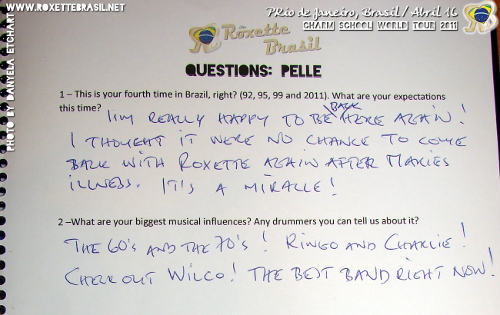 WWW.ROXETTEBRASIL.NET
Rio de Janeiro, Brasil / Abril 16
CHARM SCHOOL WORLD TOUR 2011
PHOTO BY DANYELA ETCHART
Roxette
Brasil
QUESTIONS: PELLE
1 – This is your fourth time in Brazil, right? (92, 95, 99 and 2011). What are your expectations
this time? I'M REALLY HAPPY TO BE BACK HERE AGAIN!
I THOUGHT IT WERE NO CHANCE TO COME
BACK WITH ROXETTE AGAIN AFTER MARIES
ILLNESS. IT'S A MIRACLE!
2 –What are your biggest musical influences? Any drummers you can tell us about it?
THE 60's AND THE 70's! RINGO AND CHARLIE!
CHECK OUT WILCO! THE BEST BAND RIGHT NOW!